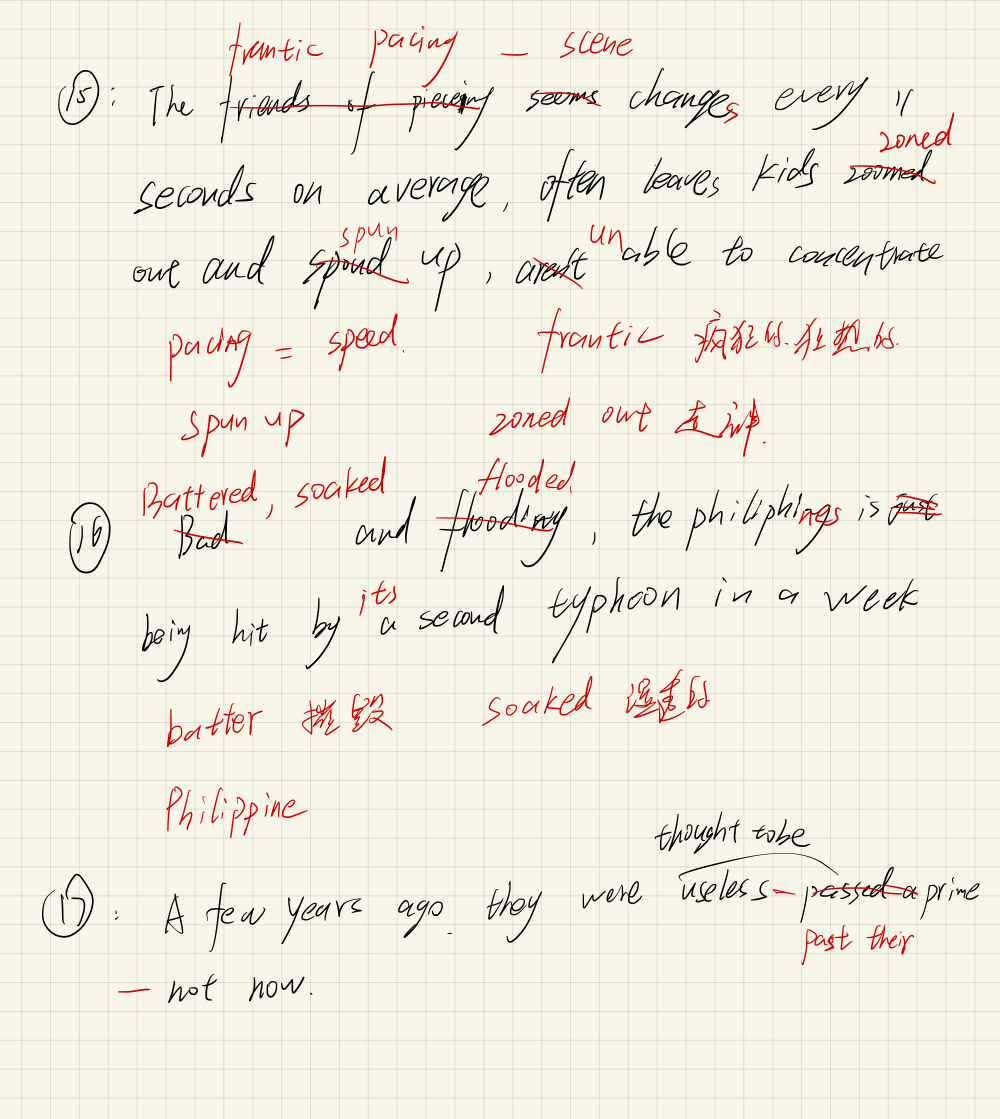 frantic pacing — scene
15: The friends of piecing seems changes every 11
zoned
seconds on average, often leaves kids zoomed
spun un
out and spond up, aren't able to concentrate
pacing = speed. frantic 疯狂的.狂热的.
spun up zoned out 走神.
Battered, soaked flooded
16 Bad and flooding, the philiphines is just
its
being hit by a second typhoon in a week
batter 摧毁 soaked 湿透的
Philippine
thought to be
17: A few years ago. they were useless — passed a prime
past their
— not now.